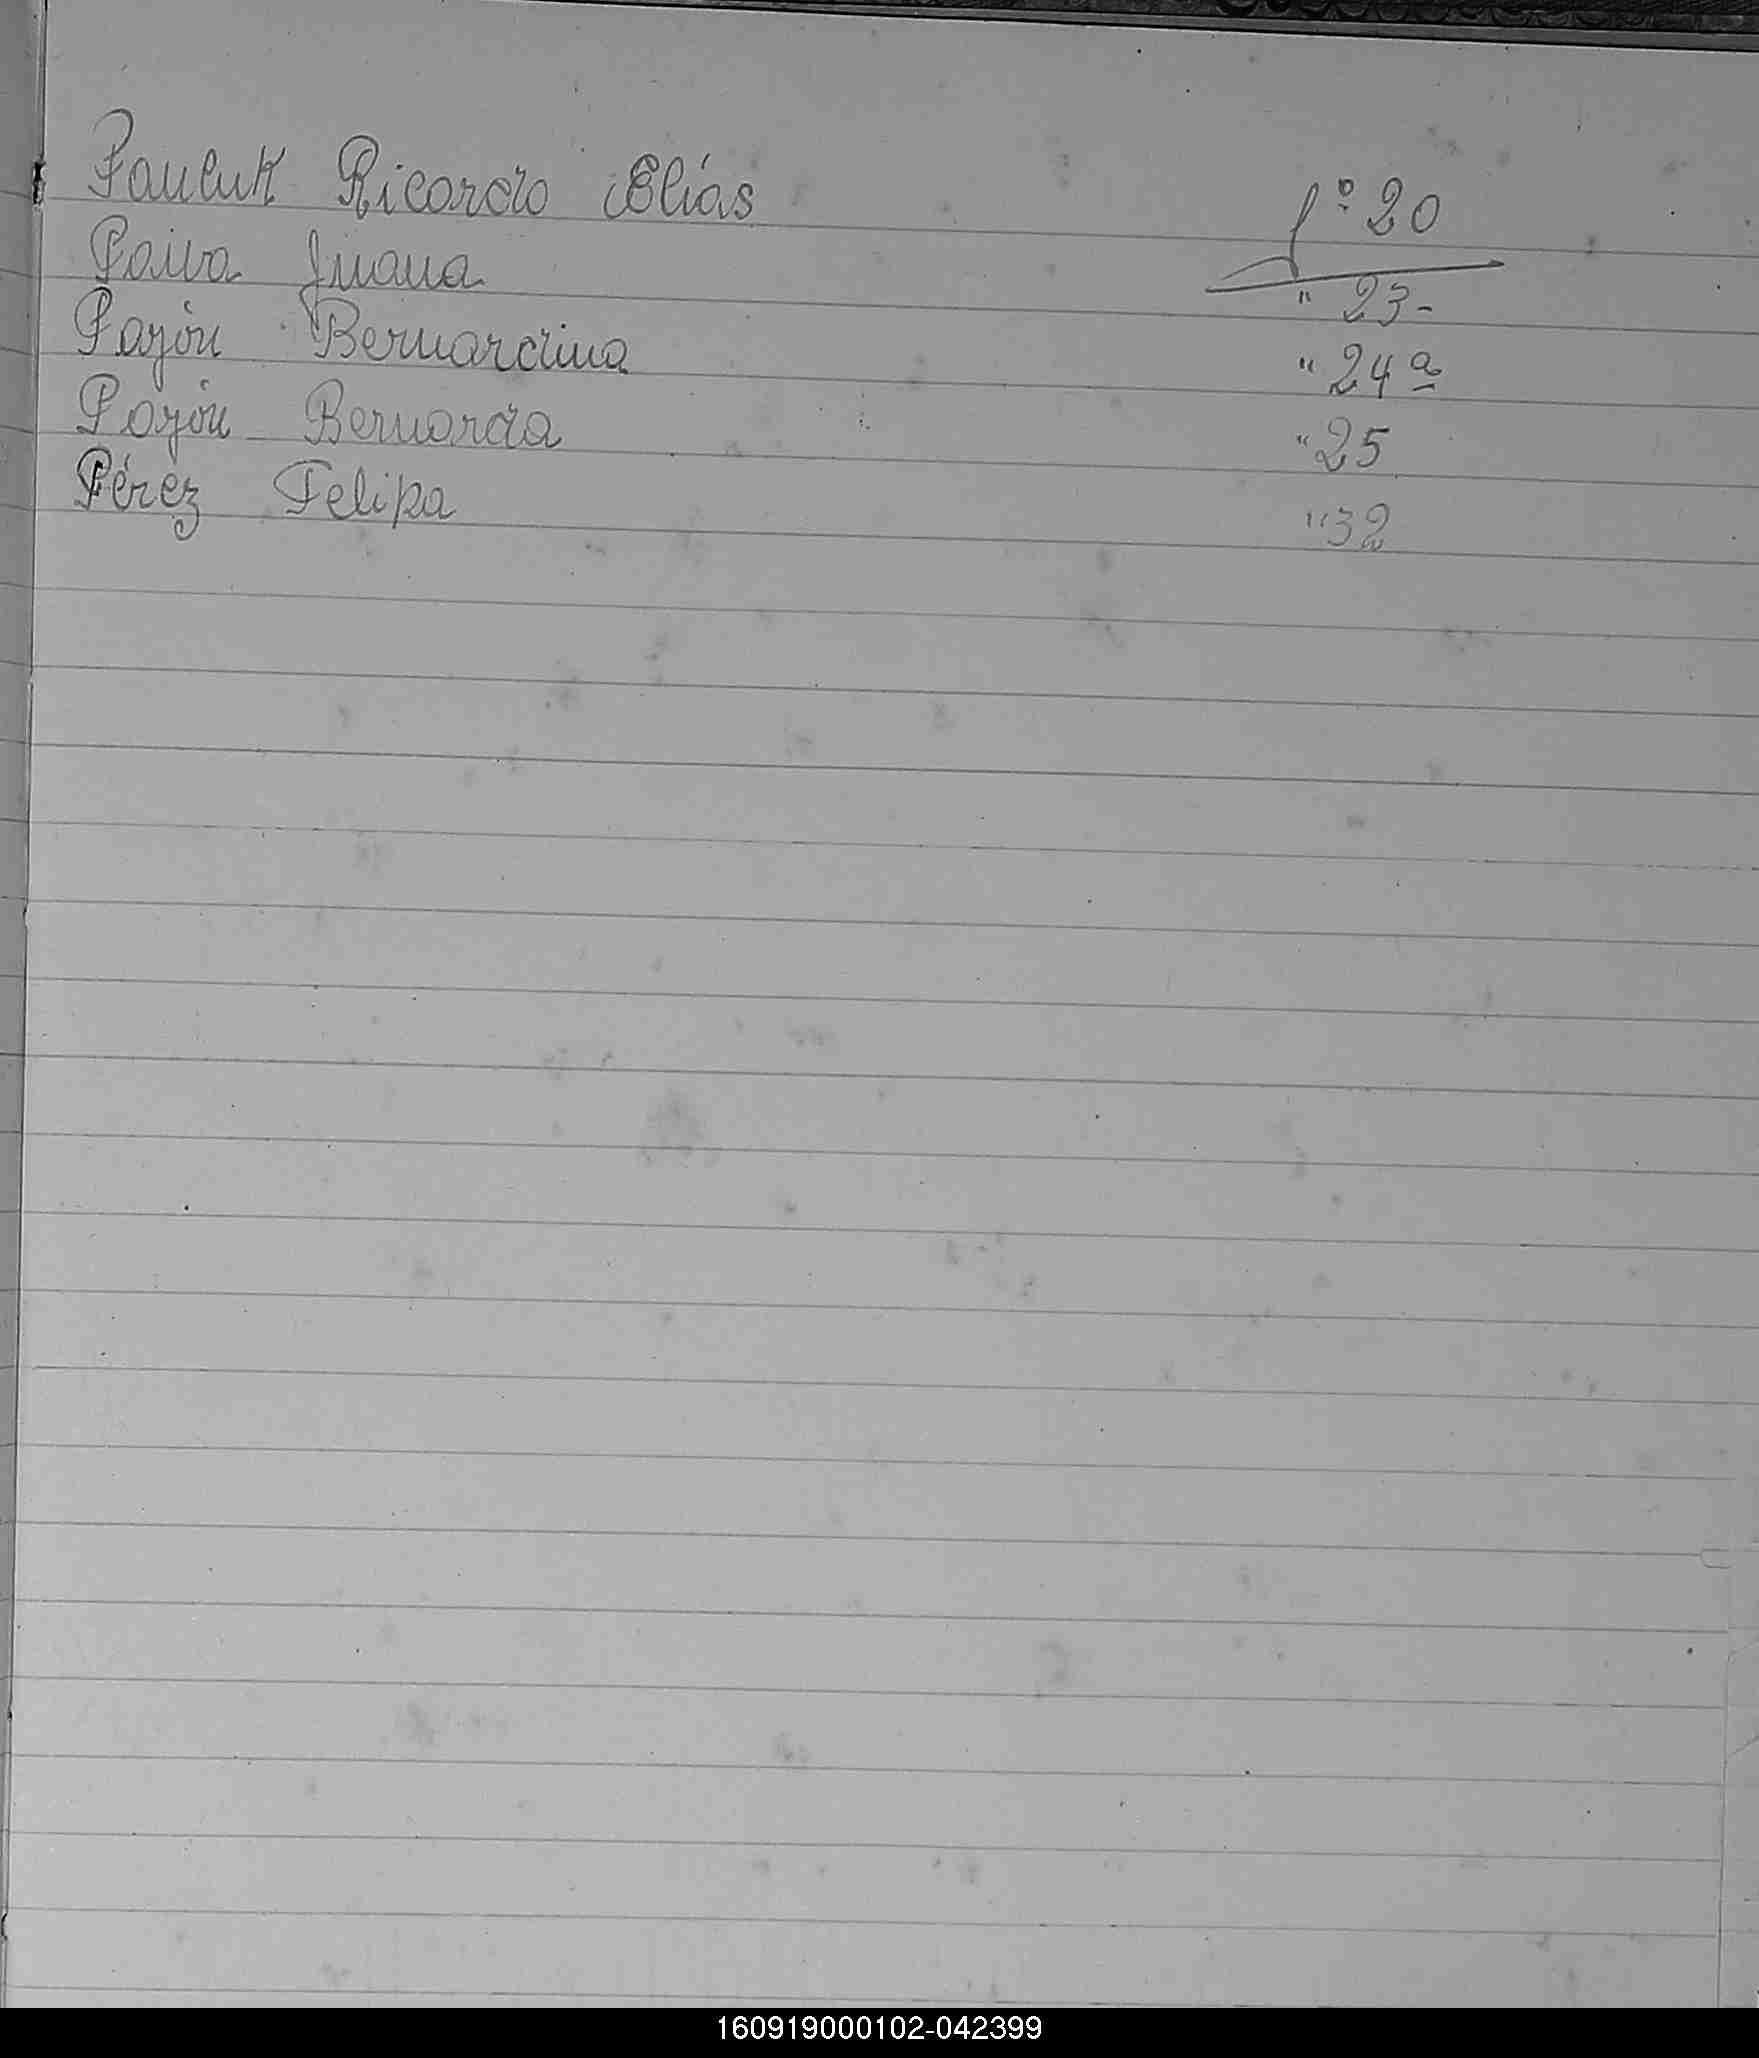 Pauluk Ricardo Elías fº 20
Paiva Juana " 23-
Pajón Bernardina " 24ª
Pajón Bernarda " 25
Pérez Felipa " 32
160919000102-042399